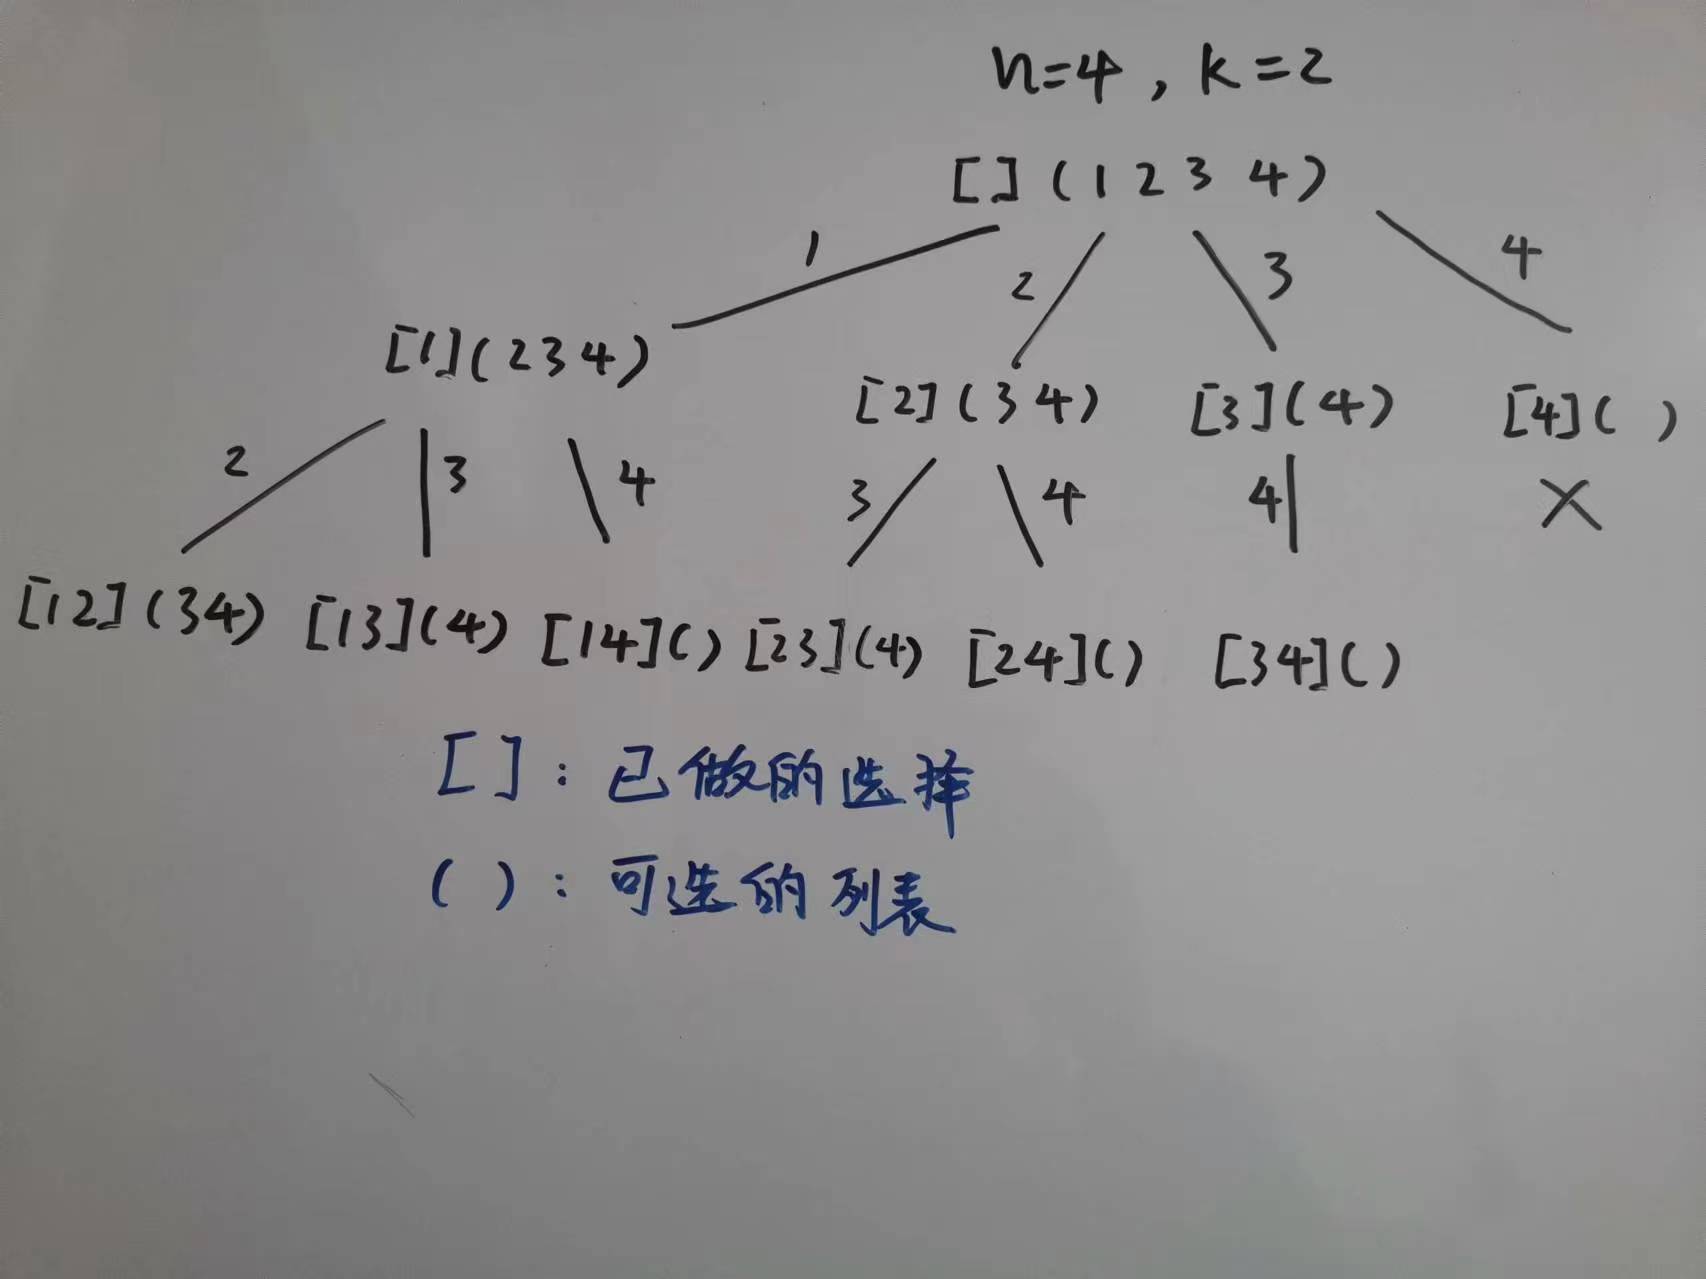 n=4, k=2
[] (1 2 3 4)
1 2 3 4
[1] (2 3 4) [2] (3 4) [3] (4) [4] ( )
2 3 4 3 4 4 ×
[12] (34) [13] (4) [14] () [23] (4) [24] () [34] ()
[ ] : 已做的选择
( ) : 可选的列表